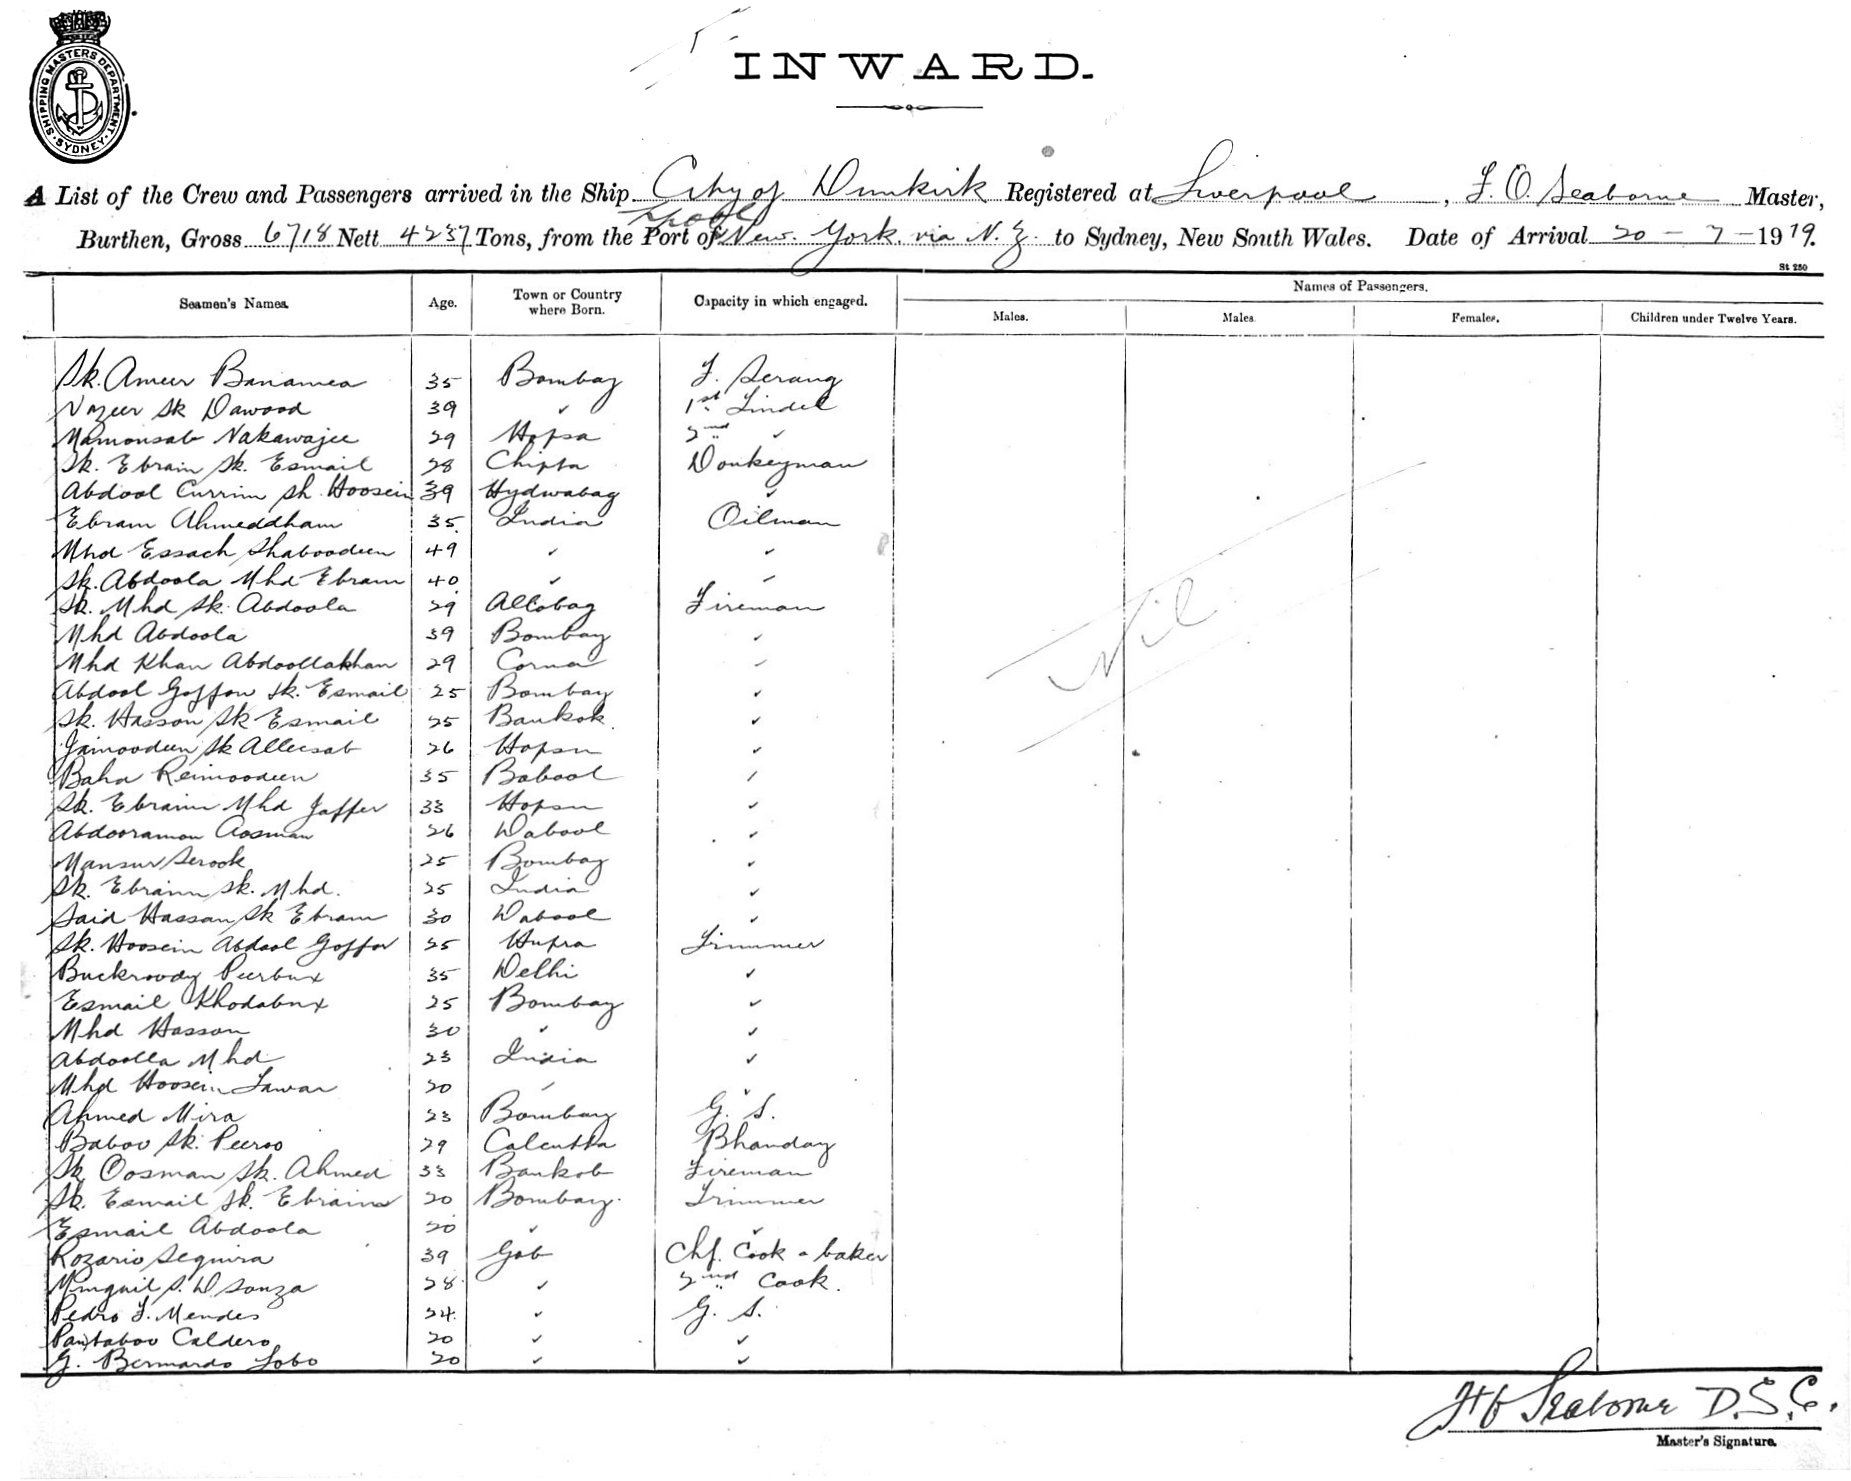 SHIPPING MASTERS DEPARTMENT. SYDNEY.
INWARD.
A List of the Crew and Passengers arrived in the Ship City of Dunkirk Registered at Liverpool, F. O. Seaborne Master,
Burthen, Gross 6718 Nett 4237 Tons, from the Port of New York via N.Z. to Sydney, New South Wales. Date of Arrival 20 - 7 - 1919.
St 250
Seamen's Names. Age. Town or Country where Born. Capacity in which engaged. Names of Passengers.
Males. Males. Females. Children under Twelve Years.
Sk. Ameer Banamea 35 Bombay F. Serang
Nazeer Sk Dawood 39 ✓ 1st Tindel
Mamonsab Nakawajee 29 Hopsa 2nd ✓
Sk. Ebraim Sk. Esmail 28 Chipta Donkeyman
Abdool Currim Sk. Hoosein 39 Hydwabag ✓
Ebram Ahmeddham 35 India Oilman
Mhd Essach Shaboodeen 49 ✓ ✓
Sk. Abdoola Mhd Ebram 40 ✓ ✓
Sk. Mhd Sk. Abdoola 29 Allobag Fireman
Mhd Abdoola 39 Bombay ✓
Mhd Khan Abdoollakhan 29 Corna ✓
Abdool Goffon Sk. Esmail 25 Bombay ✓
Sk. Hasson Sk Esmail 25 Bankok ✓
Jainoodeen Sk Alleesab 26 Hopsn ✓
Baha Reimoodeen 35 Babool ✓
Sk. Ebraim Mhd Jaffer 33 Hopsn ✓
Abdooramon Oosman 26 Dabool ✓
Mansur Serook 25 Bombay ✓
Sk. Ebraim Sk. Mhd. 25 India ✓
Said Hassan Sk Ebram 30 Dabool ✓
Sk. Hoosein Abdool Goffor 25 Hupra Trimmer
Buckroody Peerbux 35 Delhi ✓
Esmail Khodabux 25 Bombay ✓
Mhd Hasson 30 ✓ ✓
Abdoolla Mhd 23 India ✓
Mhd Hoosein Tawar 20 ✓ ✓
Ahmed Mira 23 Bombay G. S.
Baboo Sk. Peeroo 29 Calcutta Bhanday
Sk Oosman Sk. Ahmed 33 Bankob Fireman
Sk. Esmail Sk. Ebraim 20 Bombay. Trimmer
Esmail Abdoola 20 ✓ ✓
Rozario Sequira 39 Gob Chf. Cook & baker
Minguil S. D Souza 28 ✓ 2nd Cook.
Pedro F. Mendes 24 ✓ G. S.
Pantaboo Caldero 20 ✓ ✓
G. Bernardo Lobo 20 ✓ ✓
Nil
Seaborne D.S.C.
Master's Signature.